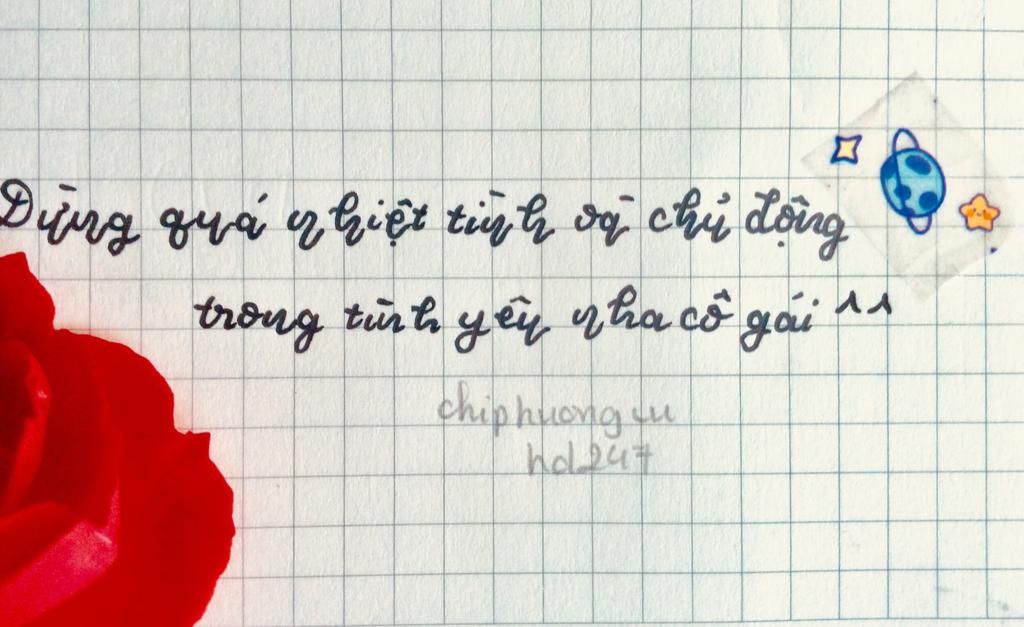 Đừng quá nhiệt tình và chủ động
trong tình yêu nha cô gái ^^
chiphuonguu
hd247